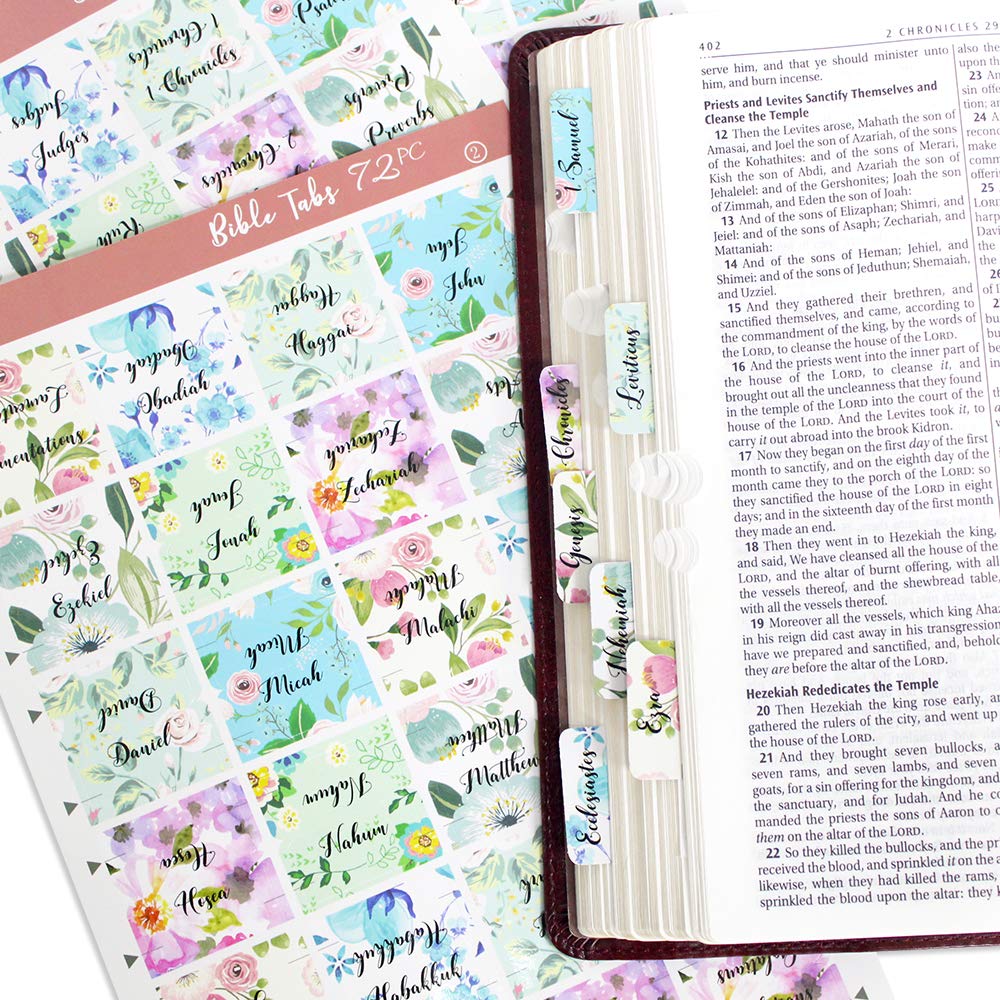 Judges
Judges
1 Chronicles
1 Chronicles
2 Chronicles
Proverbs
Proverbs
Ruth
Bible Tabs 72PC 2
Obadiah
Obadiah
Haggai
Haggai
John
John
Jonah
Jonah
Zechariah
Zechariah
Acts
Ezekiel
Ezekiel
Micah
Micah
Malachi
Malachi
Daniel
Daniel
Nahum
Nahum
Matthew
Matthew
Hosea
Hosea
Habakkuk
Habakkuk
1 Samuel
Leviticus
Chronicles
Genesis
Nehemiah
Ezra
Ecclesiastes
402
2 CHRONICLES 29
serve him, and that ye should minister unto
him, and burn incense.
Priests and Levites Sanctify Themselves and
Cleanse the Temple
12 Then the Levites arose, Mahath the son of
Amasai, and Joel the son of Azariah, of the sons
of the Kohathites: and of the sons of Merari,
Kish the son of Abdi, and Azariah the son of
Jehalelel: and of the Gershonites; Joah the son
of Zimmah, and Eden the son of Joah:
13 And of the sons of Elizaphan; Shimri, and
Jeiel: and of the sons of Asaph; Zechariah, and
Mattaniah:
14 And of the sons of Heman; Jehiel, and
Shimei: and of the sons of Jeduthun; Shemaiah,
and Uzziel.
15 And they gathered their brethren, and
sanctified themselves, and came, according to
the commandment of the king, by the words of
the LORD, to cleanse the house of the LORD.
16 And the priests went into the inner part of
the house of the LORD, to cleanse it, and
brought out all the uncleanness that they found
in the temple of the LORD into the court of the
house of the LORD. And the Levites took it, to
carry it out abroad into the brook Kidron.
17 Now they began on the first day of the first
month to sanctify, and on the eighth day of the
month came they to the porch of the LORD: so
they sanctified the house of the LORD in eight
days; and in the sixteenth day of the first month
they made an end.
18 Then they went in to Hezekiah the king,
and said, We have cleansed all the house of the
LORD, and the altar of burnt offering, with all
the vessels thereof, and the shewbread table,
with all the vessels thereof.
19 Moreover all the vessels, which king Ahaz
in his reign did cast away in his transgression,
have we prepared and sanctified, and, behold,
they are before the altar of the LORD.
Hezekiah Rededicates the Temple
20 Then Hezekiah the king rose early, and
gathered the rulers of the city, and went up
the house of the LORD.
21 And they brought seven bullocks, and
seven rams, and seven lambs, and seven
goats, for a sin offering for the kingdom, and
the sanctuary, and for Judah. And he com
manded the priests the sons of Aaron to o
them on the altar of the LORD.
22 So they killed the bullocks, and the pri
received the blood, and sprinkled it on the a
likewise, when they had killed the rams,
sprinkled the blood upon the altar: they k
also the
upon the
23 An
24 A
25
26